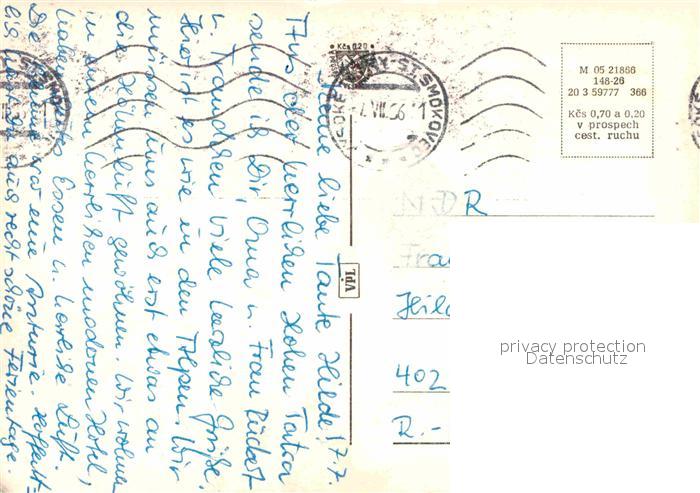 Meine liebe Tante Hilde! 17.7.
Aus der herrlichen Hohen Tatra
sende ich Dir, Oma u. Frau Rückert
u. Traudchen viele herzliche Grüße.
Hier ist es wie in den Alpen. Wir
müssen uns auch erst etwas an
die Höhenluft gewöhnen. Wir wohnen
in einem herrlichen modernen Hotel,
haben Essen u. herrliche Luft.
Die eine Hoffent-
lich haben auch recht schöne Ferientage.
Kčs 0,20
VYSOKÉ TATRY-ST.SMOKOVEC
VII.66
M 05 21866
148-26
20 3 59777 366
Kčs 0,70 a 0,20
v prospech
cest. ruchu
VPL
NDR
Frau
402
R.-
privacy protection
Datenschutz